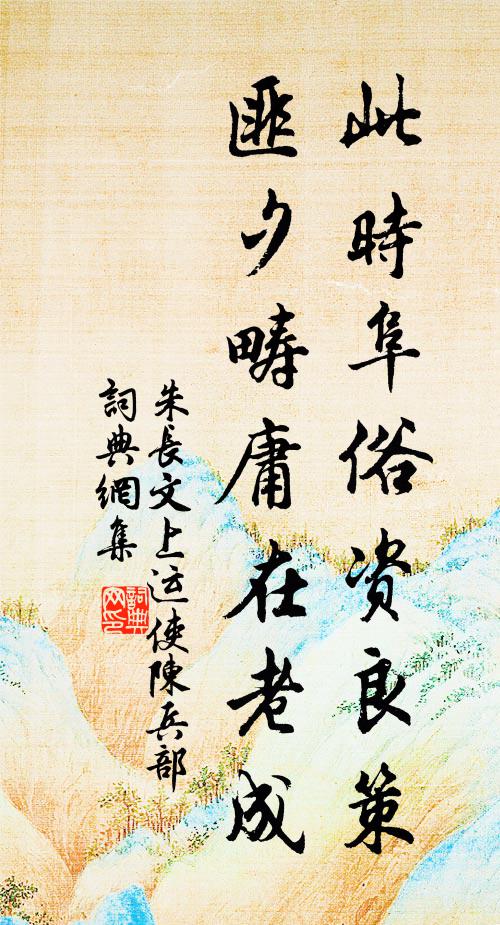 此時阜俗資良策
匪夕疇庸在老成
朱長文上运使陳兵部
詞典網集
詞典网印